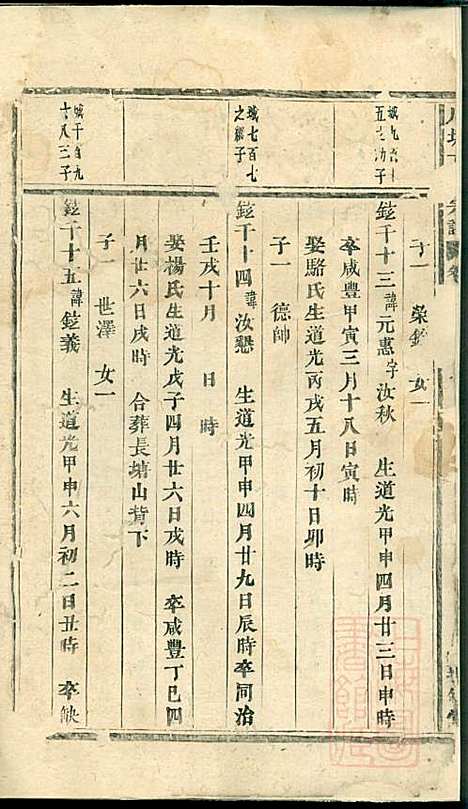 子一 榮銓 女一
鎡千十三 諱元惠字汝秋 生道光甲申四月廿三日申時
卒咸豐甲寅三月十八日寅時
娶駱氏生道光丙戌五月初十日卯時
子一 德帥
城七百七
之經子
鎡千十四 諱汝懇 生道光甲申四月廿九日辰時卒同治
壬戌十月 日 時
娶楊氏生道光戊子四月廿六日戌時 卒咸豐丁巳四
月廿六日戌時 合葬長塘山背下
子一 世澤 女一
城千百九
十八三子
鎡千十五 諱鎡義 生道光甲申六月初二日丑時 卒缺